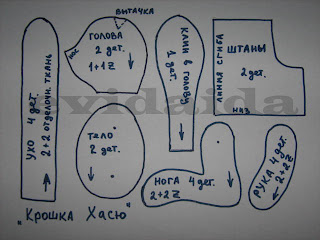 ВЫТАЧКА
УХО 4 дет.
2+2 отделочн. ткань
нос
ГОЛОВА
2 дет.
1+1 Z
КЛИН в голову
1 дет.
ЛИНИЯ СГИБА
ШТАНЫ
2 дет.
НИЗ
Тело
2 дет.
НОГА 4 дет.
2+2 Z
РУКА 4 дет.
2+2 Z
"Крошка Хасю"